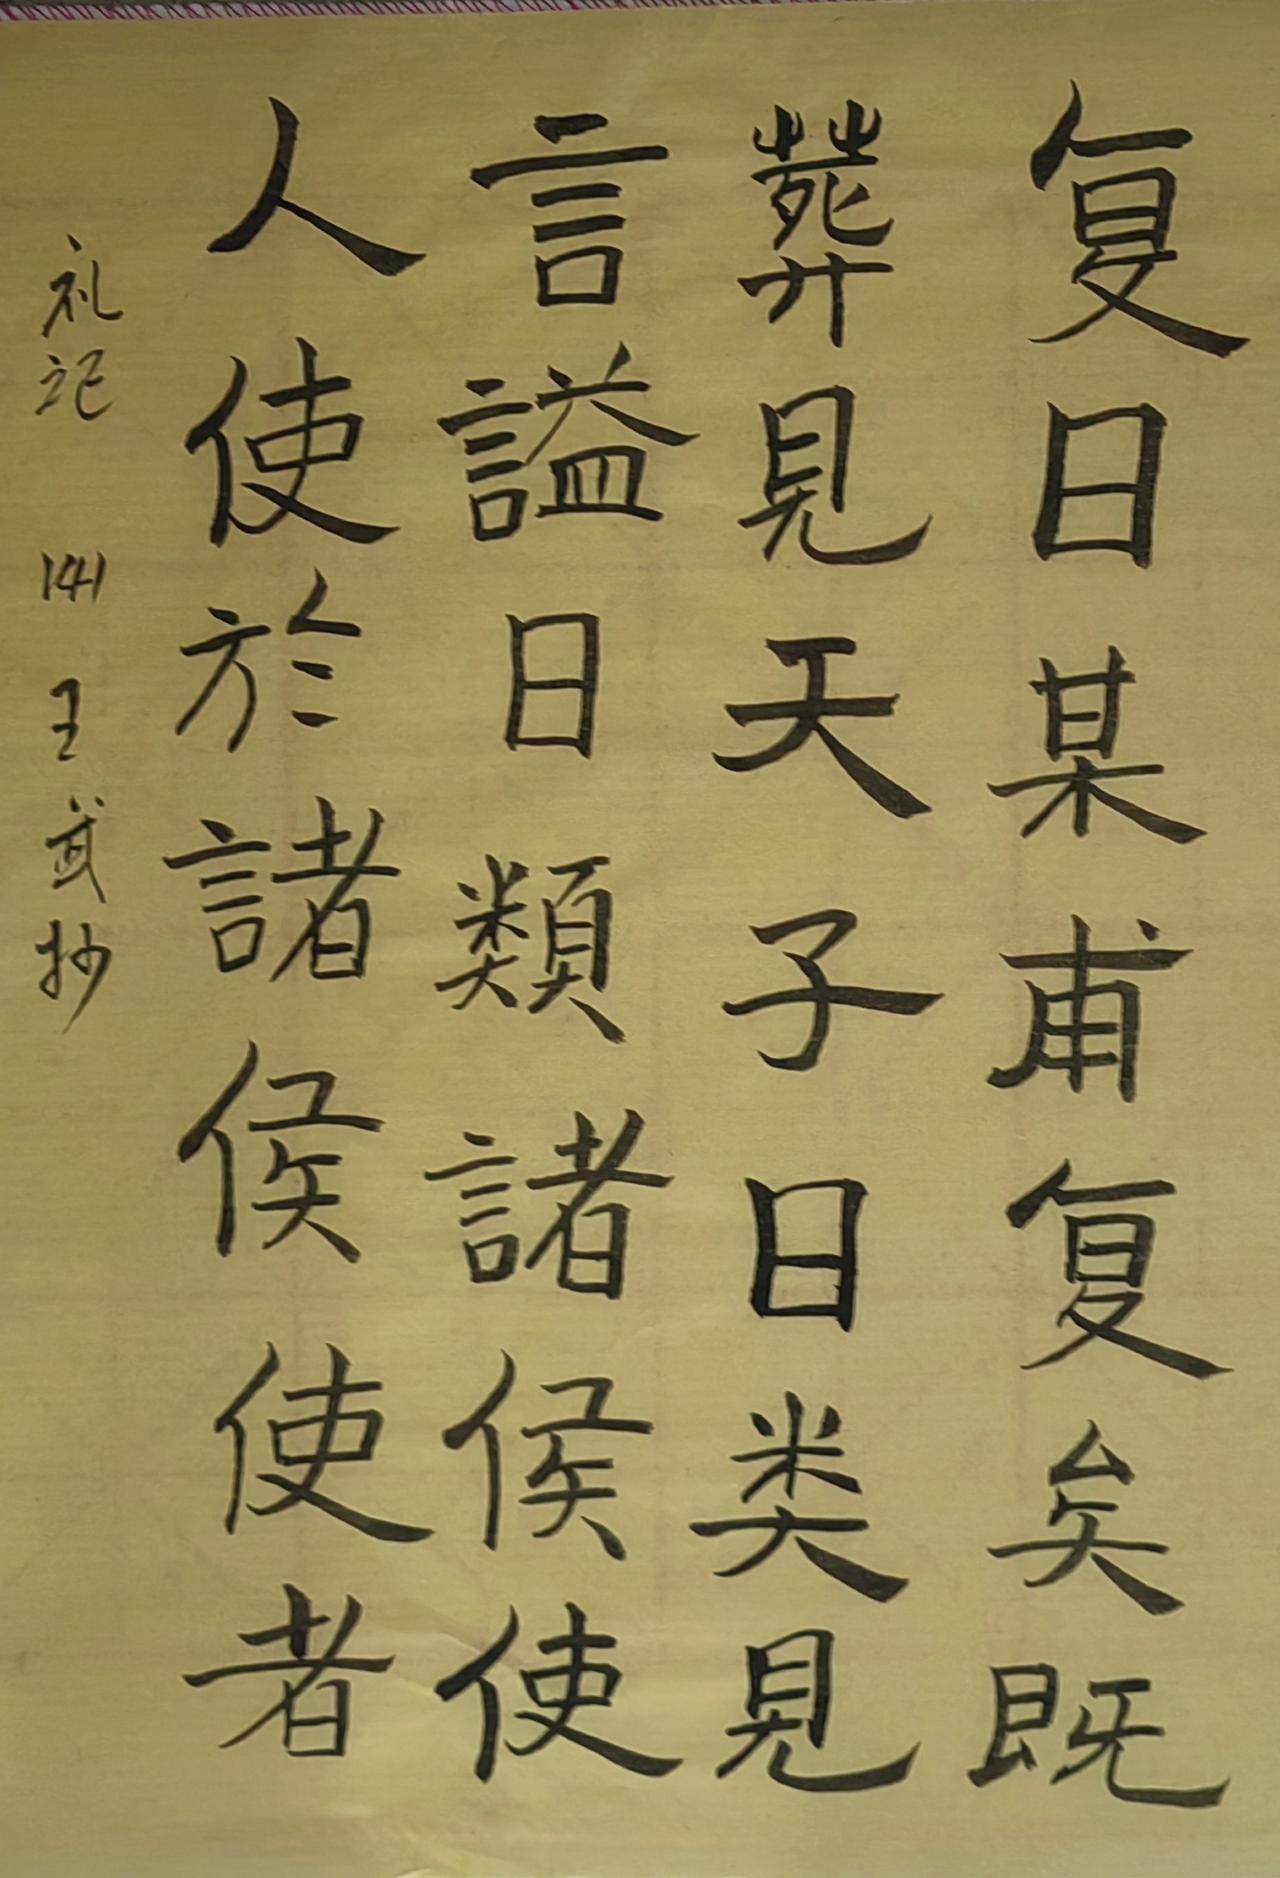 复日某甫复矣既
葬見天子日类見
言謚日類諸侯使
人使於諸侯使者
礼记 141 王武抄